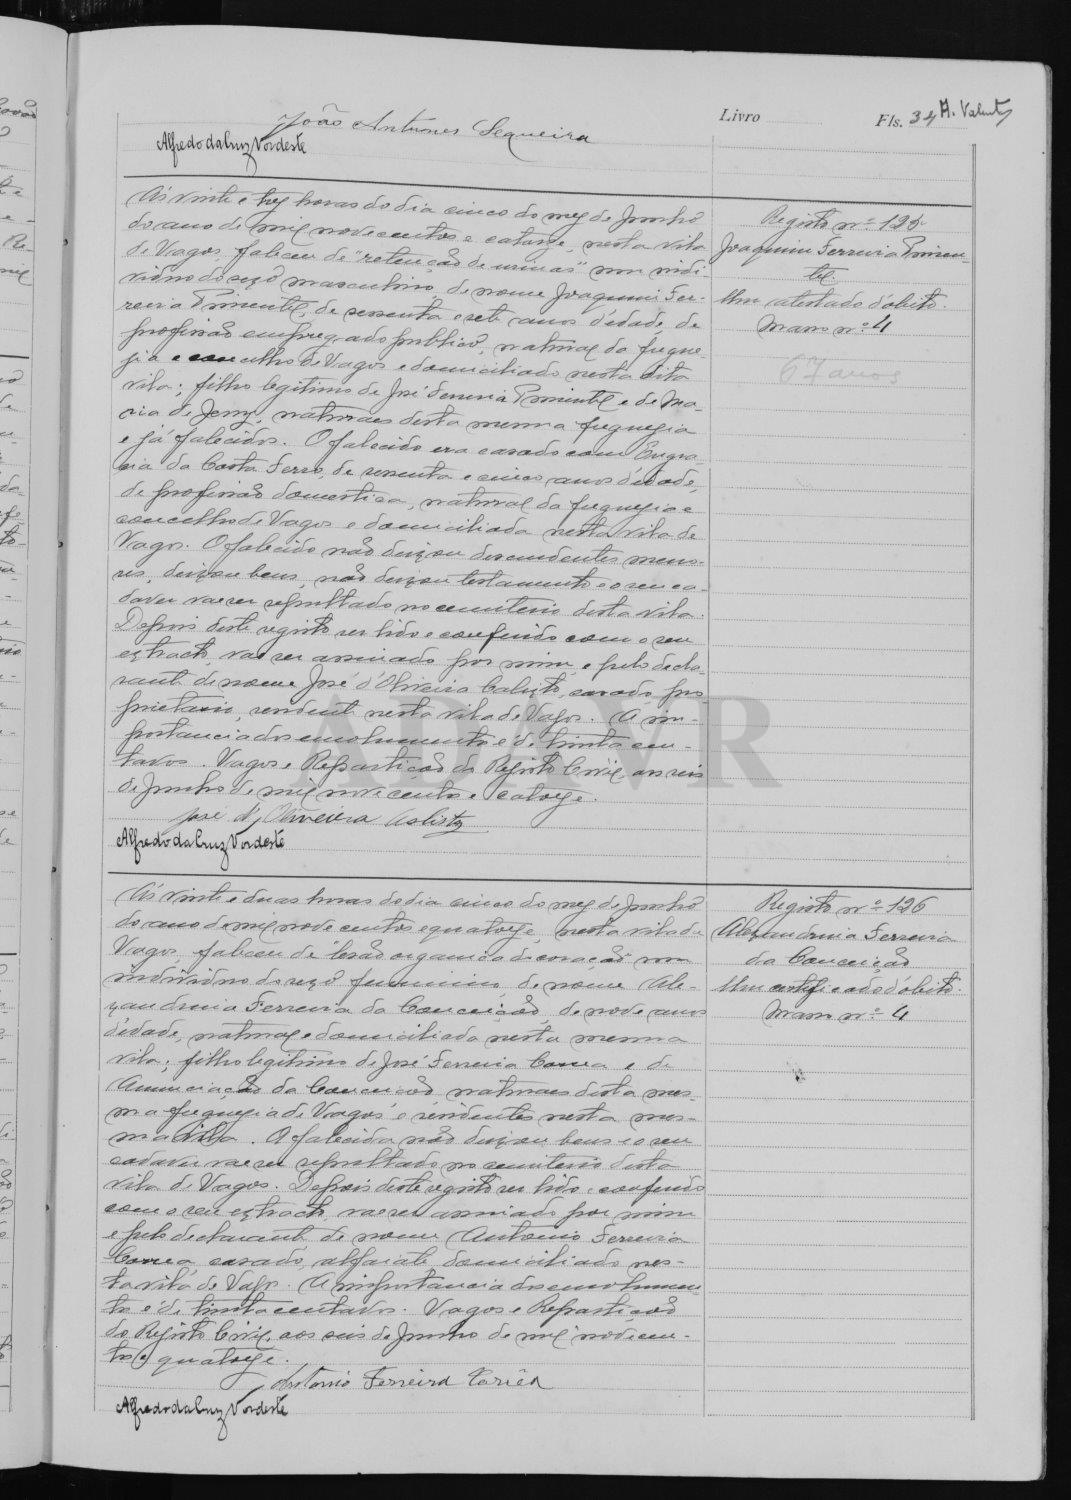 João Antunes Sequeira
Livro
Fls. 34 A. Valente
Alfredo da Cruz Nordeste
Ás vinte e trez horas do dia cinco do mez de Junho
do ano de mil novecentos e catorze, nesta vila
de Vagos, faleceu de "retenção de urinas" um indi-
viduo do sexo masculino de nome Joaquim Fer-
reira Pimentel, de sessenta e sete anos d'edade, de
profissão empregado publico, natural da fregue-
zia e concelho de Vagos e domiciliado nesta dita
vila; filho legitimo de José Ferreira Pimentel e de Ma-
ria de Jezus, naturaes desta mesma freguezia
e já falecidos. O falecido era casado com Engra-
cia da Costa Ferro, de sessenta e cinco anos d'edade,
de profissão domestica, natural da freguezia e
concelho de Vagos e domiciliada nesta vila de
Vagos. O falecido não deixou descendentes meno-
res, deixou bens, não deixou testamento e o seu ca-
daver vae ser sepultado no cemiterio desta vila.
Depois deste registo ser lido e conferido com o seu
extracto, vae ser assinado por mim, e pelo decla-
rante de nome José d'Oliveira Calisto, casado, pro-
prietario, residente nesta vila de Vagos. A im-
portancia dos emolumentos é de trinta cen-
tavos. Vagos e Repartição do Registo Civil, aos seis
de Junho de mil novecentos e catorze.
José d'Oliveira Calisto
Alfredo da Cruz Nordeste
Registo nº 125
Joaquim Ferreira Pimen-
tel
Um atestado d'obito.
Maço nº 4
67 anos
ADAVR
Ás vinte e duas horas do dia cinco do mez de Junho
do ano de mil novecentos e quatorze, nesta vila de
Vagos, faleceu de "lesão organica de coração" um
individuo do sexo feminino de nome Ale-
xandrina Ferreira da Conceição, de nove anos
d'edade, natural e domiciliada nesta mesma
vila; filho legitimo de José Ferreira Correa e de
Anunciação da Conceição, naturaes desta mes-
ma freguezia de Vagos e residentes nesta mes-
ma vila. A falecida não deixou bens e o seu
cadaver vae ser sepultado no cemiterio desta
vila de Vagos. Depois deste registo ser lido e conferido
com o seu extracto, vae ser assinado por mim
e pelo declarante de nome Antonio Ferreira
Correa, casado, alfaiate, domiciliado nes-
ta vila de Vagos. A importancia dos emolumen-
tos é de trinta centavos. Vagos e Repartição
do Registo Civil, aos seis de Junho de mil novecen-
tos e quatorze.
Antonio Ferreira Corrêa
Alfredo da Cruz Nordeste
Registo nº 126
Alexandrina Ferreira
da Conceição
Um certificado d'obito.
Maço nº 4